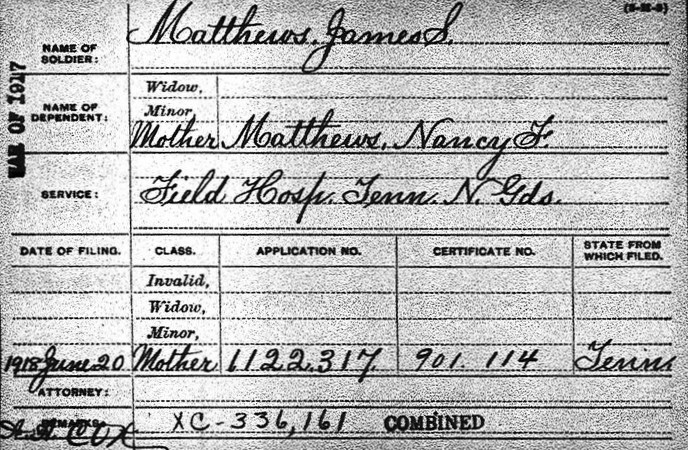 (3-M-3)
NAME OF SOLDIER: Matthews, James S.
WAR OF 1917
NAME OF DEPENDENT:
Widow,
Minor,
Mother Matthews, Nancy F.
SERVICE: Field Hosp. Tenn. N. Gds.
DATE OF FILING. CLASS. APPLICATION NO. CERTIFICATE NO. STATE FROM WHICH FILED.
Invalid,
Widow,
Minor,
1918 June 20 Mother 1122.317 901 114 Tenn
ATTORNEY:
REMARKS: XC-336,161 COMBINED
COX